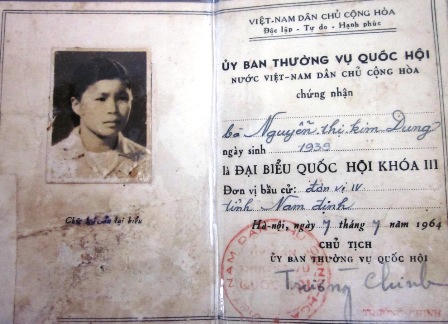 VIỆT-NAM DÂN CHỦ CỘNG HÒA
Độc lập - Tự do - Hạnh phúc
ỦY BAN THƯỜNG VỤ QUỐC HỘI
NƯỚC VIỆT-NAM DÂN CHỦ CỘNG HÒA
chứng nhận
bà Nguyễn thị kim Dung
ngày sinh 1939
là ĐẠI BIỂU QUỐC HỘI KHÓA III
Đơn vị bầu cử: đơn vị IV
tỉnh Nam định
Hà-nội, ngày 7 tháng 7 năm 1964
CHỦ TỊCH
ỦY BAN THƯỜNG VỤ QUỐC HỘI
Trường Chinh
TRƯỜNG-CHINH
Chữ ký của đại biểu